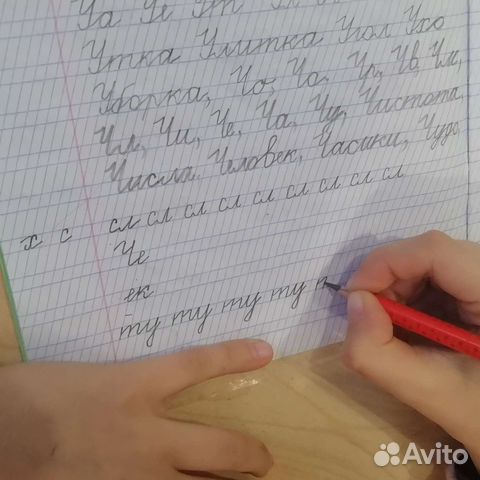 Уа Уе Ут Ул
Утка Улитка Угол Ухо
Уборка, Чо, Ча, Чр, Чв, Чм,
Чл, Чи, Че, Ча, Чу, Чистота,
Числа, Человек, Часики, Чудо,
х с сл сл сл сл сл сл сл сл сл
Че
ек
ту ту ту ту
Avito